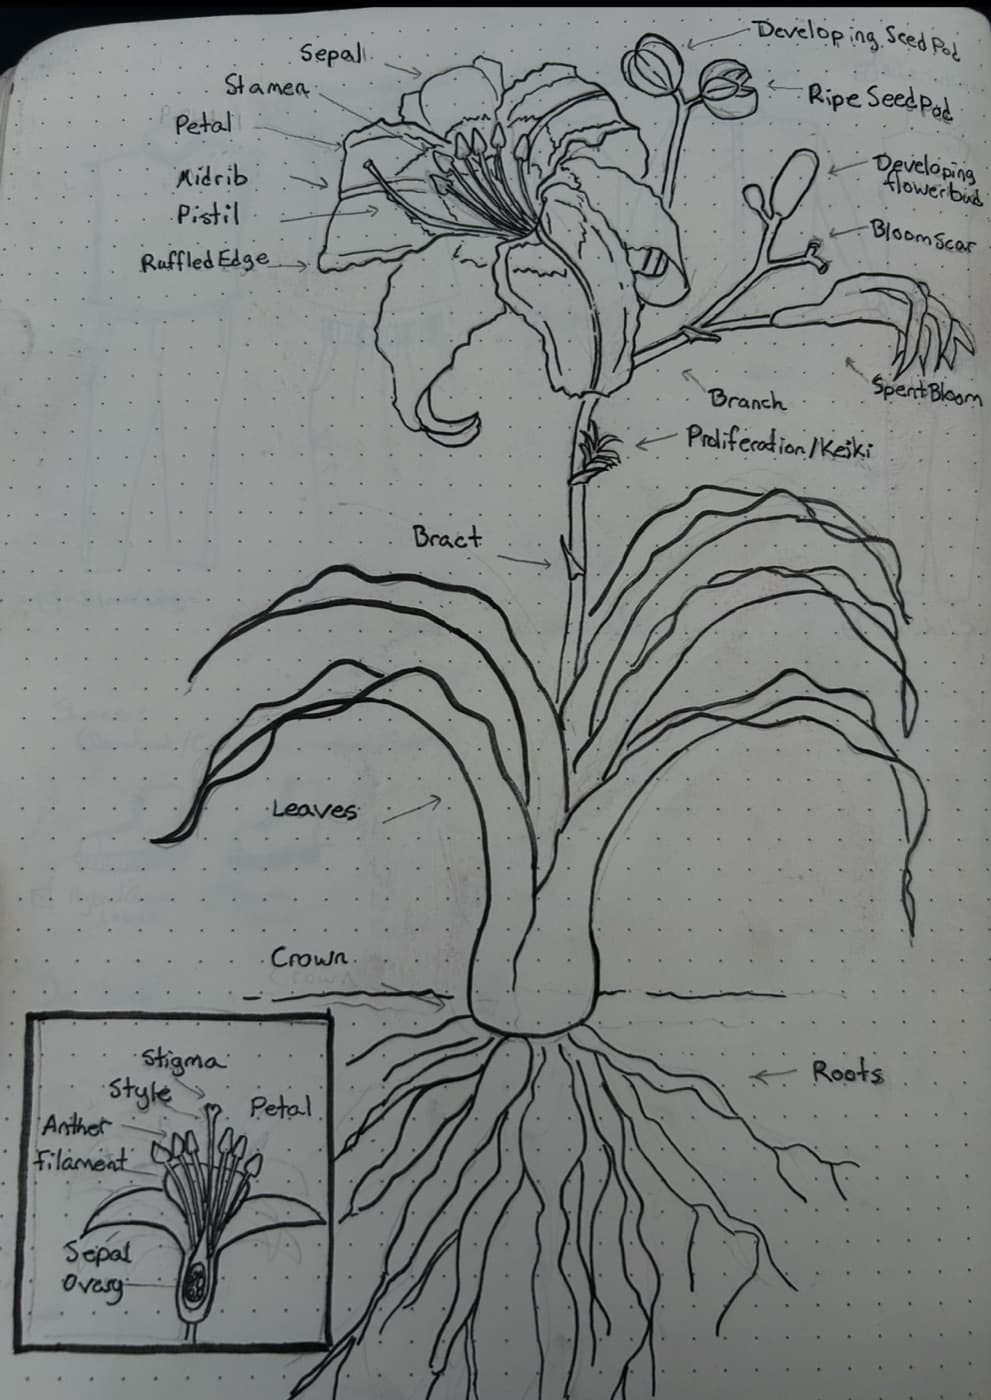 Sepal
Stamen
Petal
Midrib
Pistil
Ruffled Edge
Developing Seed Pod
Ripe Seed Pod
Developing
flower bud
Bloom Scar
Spent Bloom
Branch
Proliferation/Keiki
Bract
Leaves
Crown
Roots
Stigma
Style
Petal
Anther
Filament
Sepal
Ovary